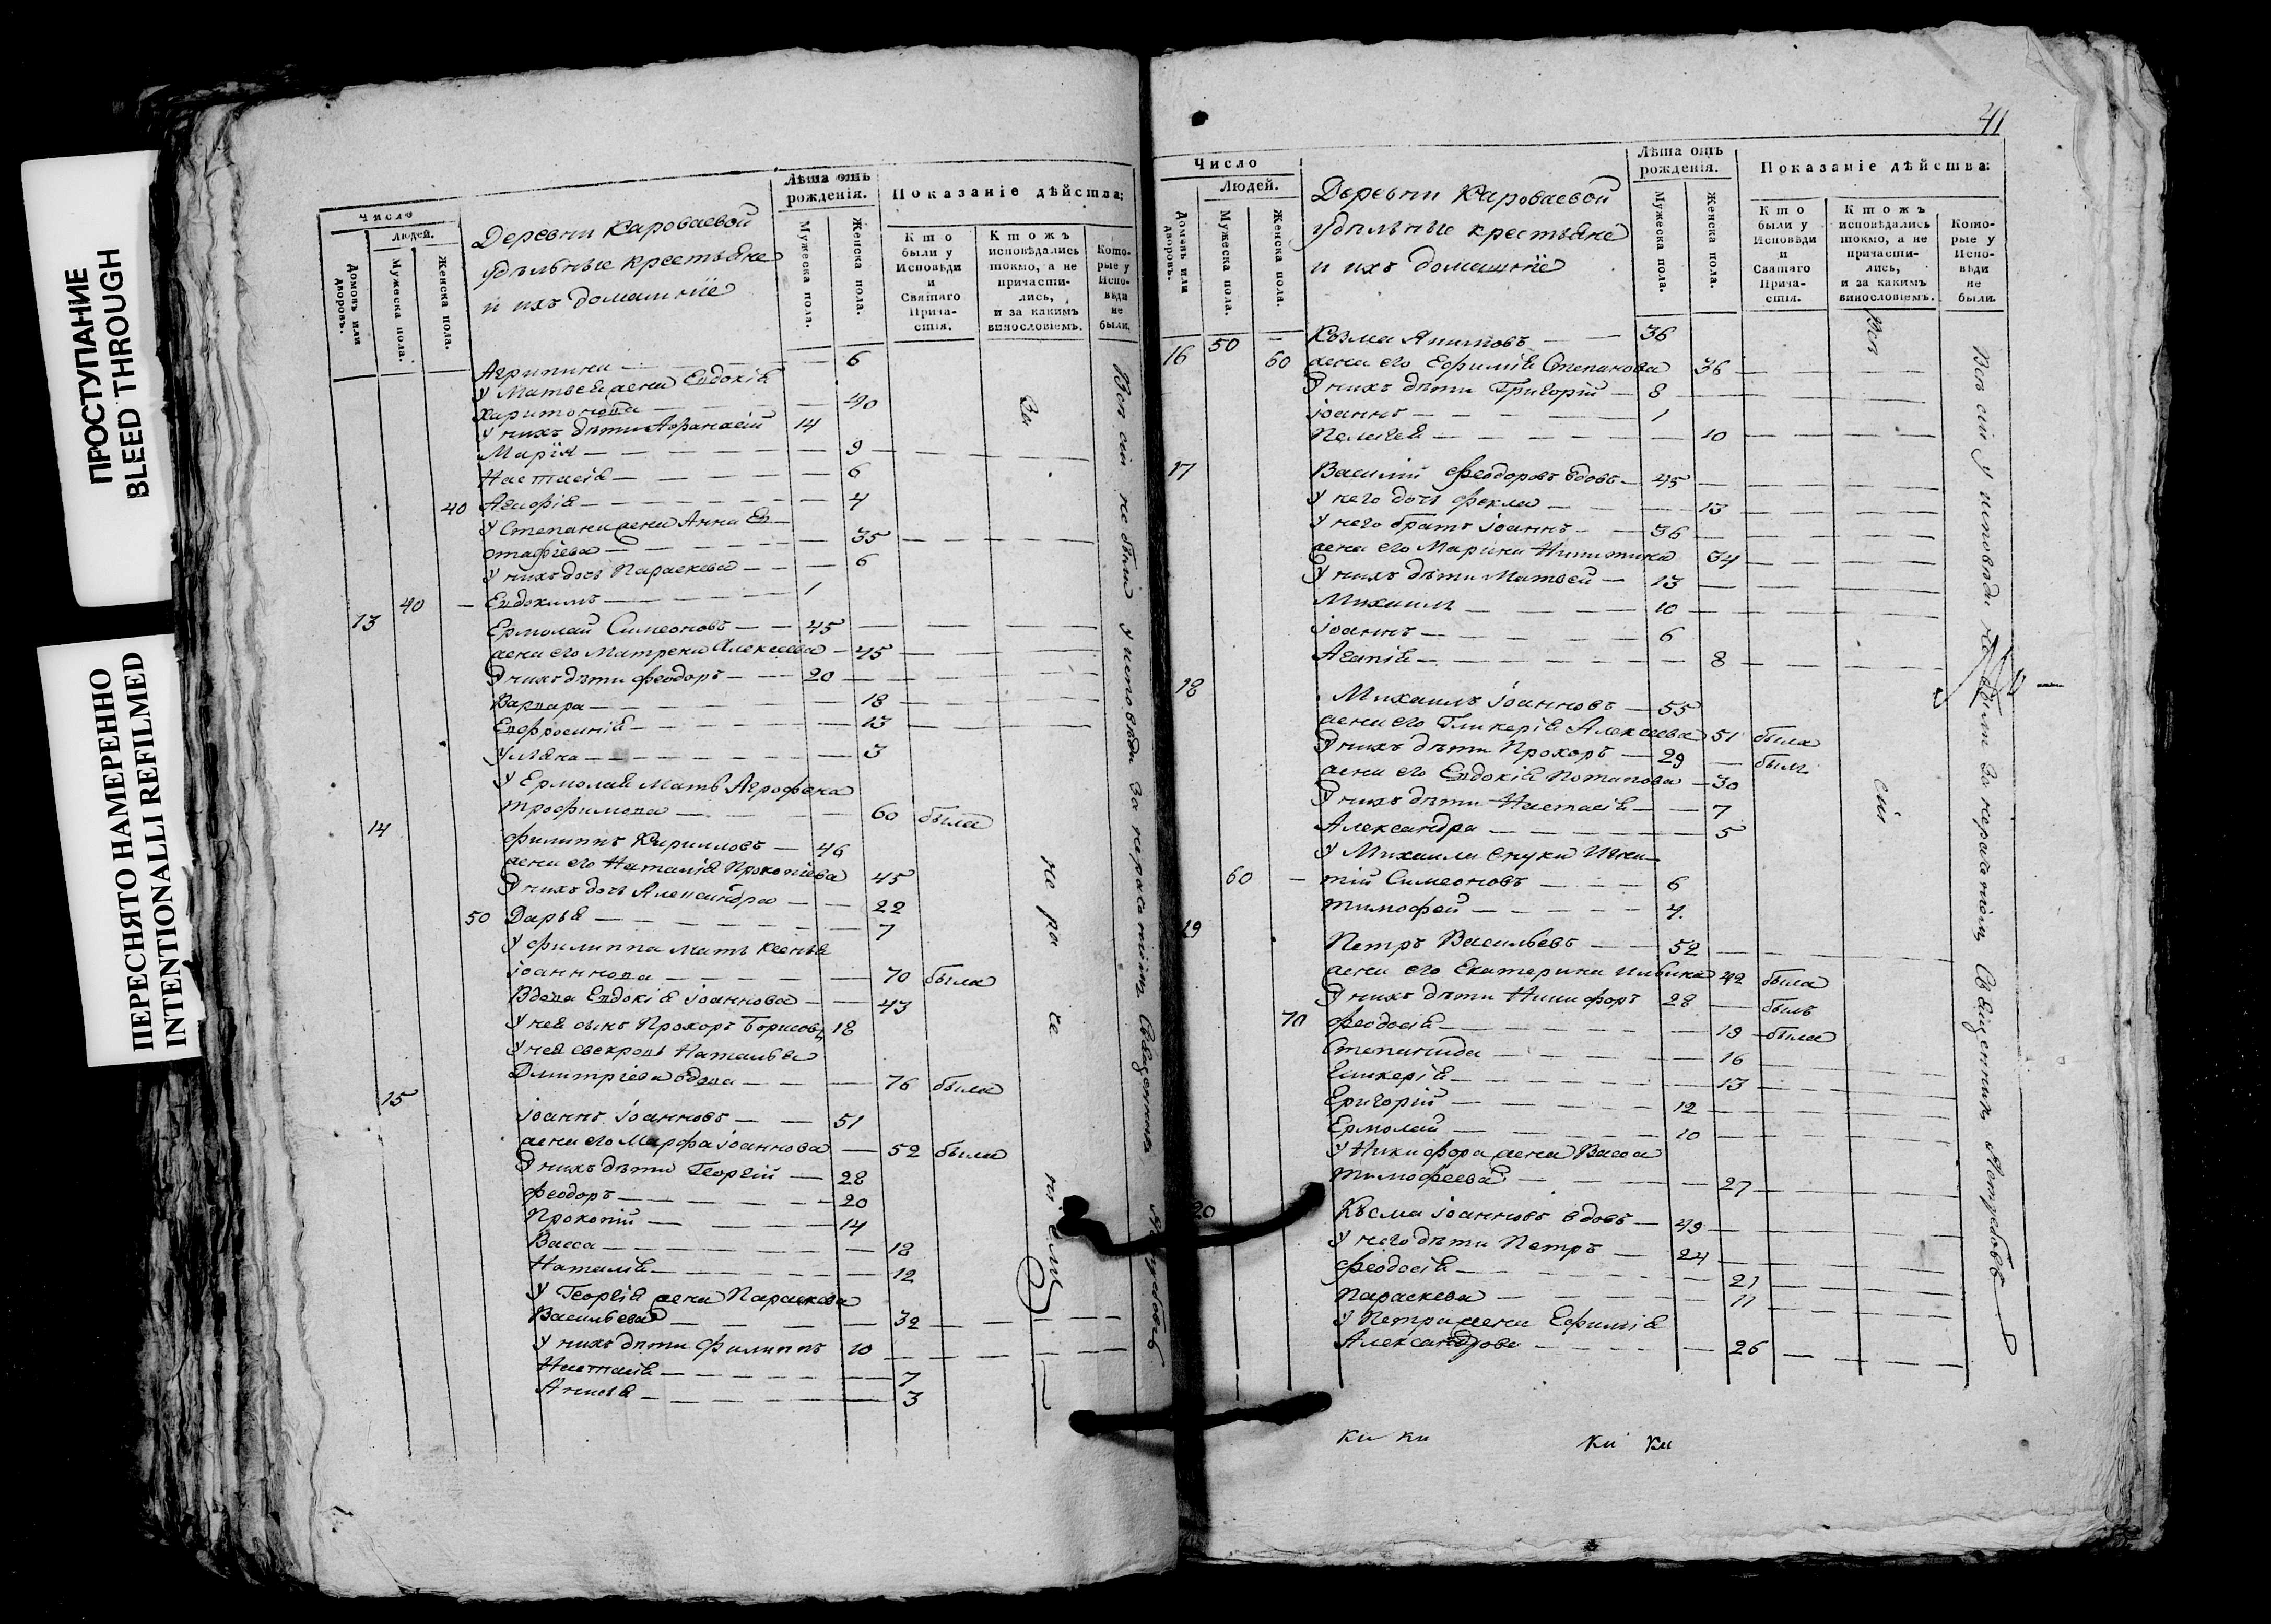 ПРОСТУПАНИЕ
BLEED THROUGH
ПЕРЕСНЯТО НАМЕРЕННО
INTENTIONALLI REFILMED
Число
Людей.
Домовъ или дворовъ.
Мужеска пола.
Женска пола.
Деревни Кароваевой
удѣльные крестьяне
и ихъ домашніе
Лѣта отъ рожденія.
Мужеска пола.
Женска пола.
Показаніе дѣйства:
Кто были у Исповѣди и Святаго Причастія.
Ктожъ исповѣдались токмо, а не причастились, и за какимъ винословіемъ.
Которые у Исповѣди не были.
Агрипина — 6
У Матвея жена Евдокія
Харитонова — 40
У нихъ дѣти Афанасій 14
Марія — 9
Настасія — 6
40 Агафія — 4
У Степана жена Анна Ев-
стафіева — 35
У нихъ дочь Параскева — 6
40 — Евдокимъ — 1
13 Ермолай Симеоновъ — 45
жена его Матрена Алексеева — 45
У нихъ дѣти Феодоръ — 20
Варвара — 18
Евфросинія — 13
Ульяна — 3
У Ермолая мать Агрофена
Трофимова — 60 была
14 Филиппъ Кирилловъ — 46
жена его Наталія Прокопіева 45
У нихъ дочь Александра — 22
50 Дарья — 7
У Филиппа мать Ксенья
Іоаннова — 70 была
Вдова Евдокія Іоаннова — 43
У нея сынъ Прохоръ Борисовъ 18
У нея свекровь Наталья
Дмитріева вдова — 76 была
15 Іоаннъ Іоанновъ — 51
жена его Марфа Іоаннова — 52 была
У нихъ дѣти Георгій — 28
Феодоръ — 20
Прокопій — 14
Васса — 18
Наталія — 12
У Георгія жена Параскева
Васильева — 32
У нихъ дѣти Филиппъ 10
Настасія — 7
Анисья — 3
За не ра че ні емъ
Всѣ сіи не были у исповѣди за нерачениемъ Священникъ
41
Число
Людей.
Домовъ или дворовъ.
Мужеска пола.
Женска пола.
Деревни Кароваевой
удѣльные крестьяне
и ихъ домашніе
Лѣта отъ рожденія.
Мужеска пола.
Женска пола.
Показаніе дѣйства:
Кто были у Исповѣди и Святаго Причастія.
Ктожъ исповѣдались токмо, а не причастились, и за какимъ винословіемъ.
Которые у Исповѣди не были.
16 50 — Козма Антиповъ — 36
60 жена его Ефимія Степанова 36
У нихъ дѣти Григорій — 8
Іоаннъ — 1
Пелагея — 10
17 Василій Феодоровъ вдовъ — 45
У него дочь Фекла — 13
У него братъ Іоаннъ — 36
жена его Марина Никитина 34
У нихъ дѣти Матвей — 13
Михаилъ — 10
Іоаннъ — 6
Агапія — 8
18 Михаилъ Іоанновъ — 55
жена его Гликерія Алексеева 51 была
У нихъ дѣти Прохоръ — 29 — былъ
жена его Евдокія Потапова — 30
У нихъ дѣти Настасія — 7
Александра — 5
У Михаила внуки Игна-
60 — тій Симеоновъ — 6
Тимофей — 4
19 Петръ Васильевъ — 52
жена его Екатерина Ильина 42 была
У нихъ дѣти Никифоръ 28 — былъ
70 Феодосія — 19 — была
Степанида — 16
Гликерія — 13
Григорій — 12
Ермолай — 10
У Никифора жена Васса
Тимофеева — 27
20 Косма Іоанновъ вдовъ — 49
У него дѣти Петръ — 24
Феодосія — 21
Параскева — 11
У Петра жена Ефимія
Александрова — 26
Всѣ сіи
Всѣ сіи у исповѣди не были за нерачениемъ Священникъ